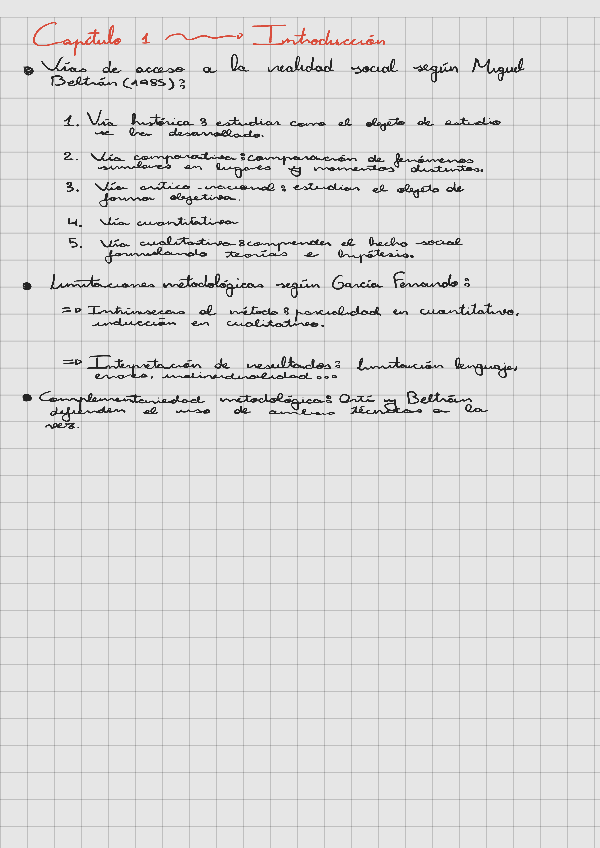 Capítulo 1 → Introducción
• Vías de acceso a la realidad social según Miguel
Beltrán (1985):
1. Vía histórica: estudiar como el objeto de estudio
se ha desarrollado.
2. Vía comparativa: comparación de fenómenos
similares en lugares y momentos distintos.
3. Vía crítico-racional: estudiar el objeto de
forma objetiva.
4. Vía cuantitativa
5. Vía cualitativa: comprender el hecho social
formulando teorías e hipótesis.
• Limitaciones metodológicas según García Fernando:
⇒ Intrínsecas al método: parcialidad en cuantitativo,
inducción en cualitativo.
⇒ Interpretación de resultados: limitación lenguaje,
errores, individualidad...
• Complementariedad metodológica: Ortí y Beltrán
defienden el uso de ambas técnicas a la
vez.